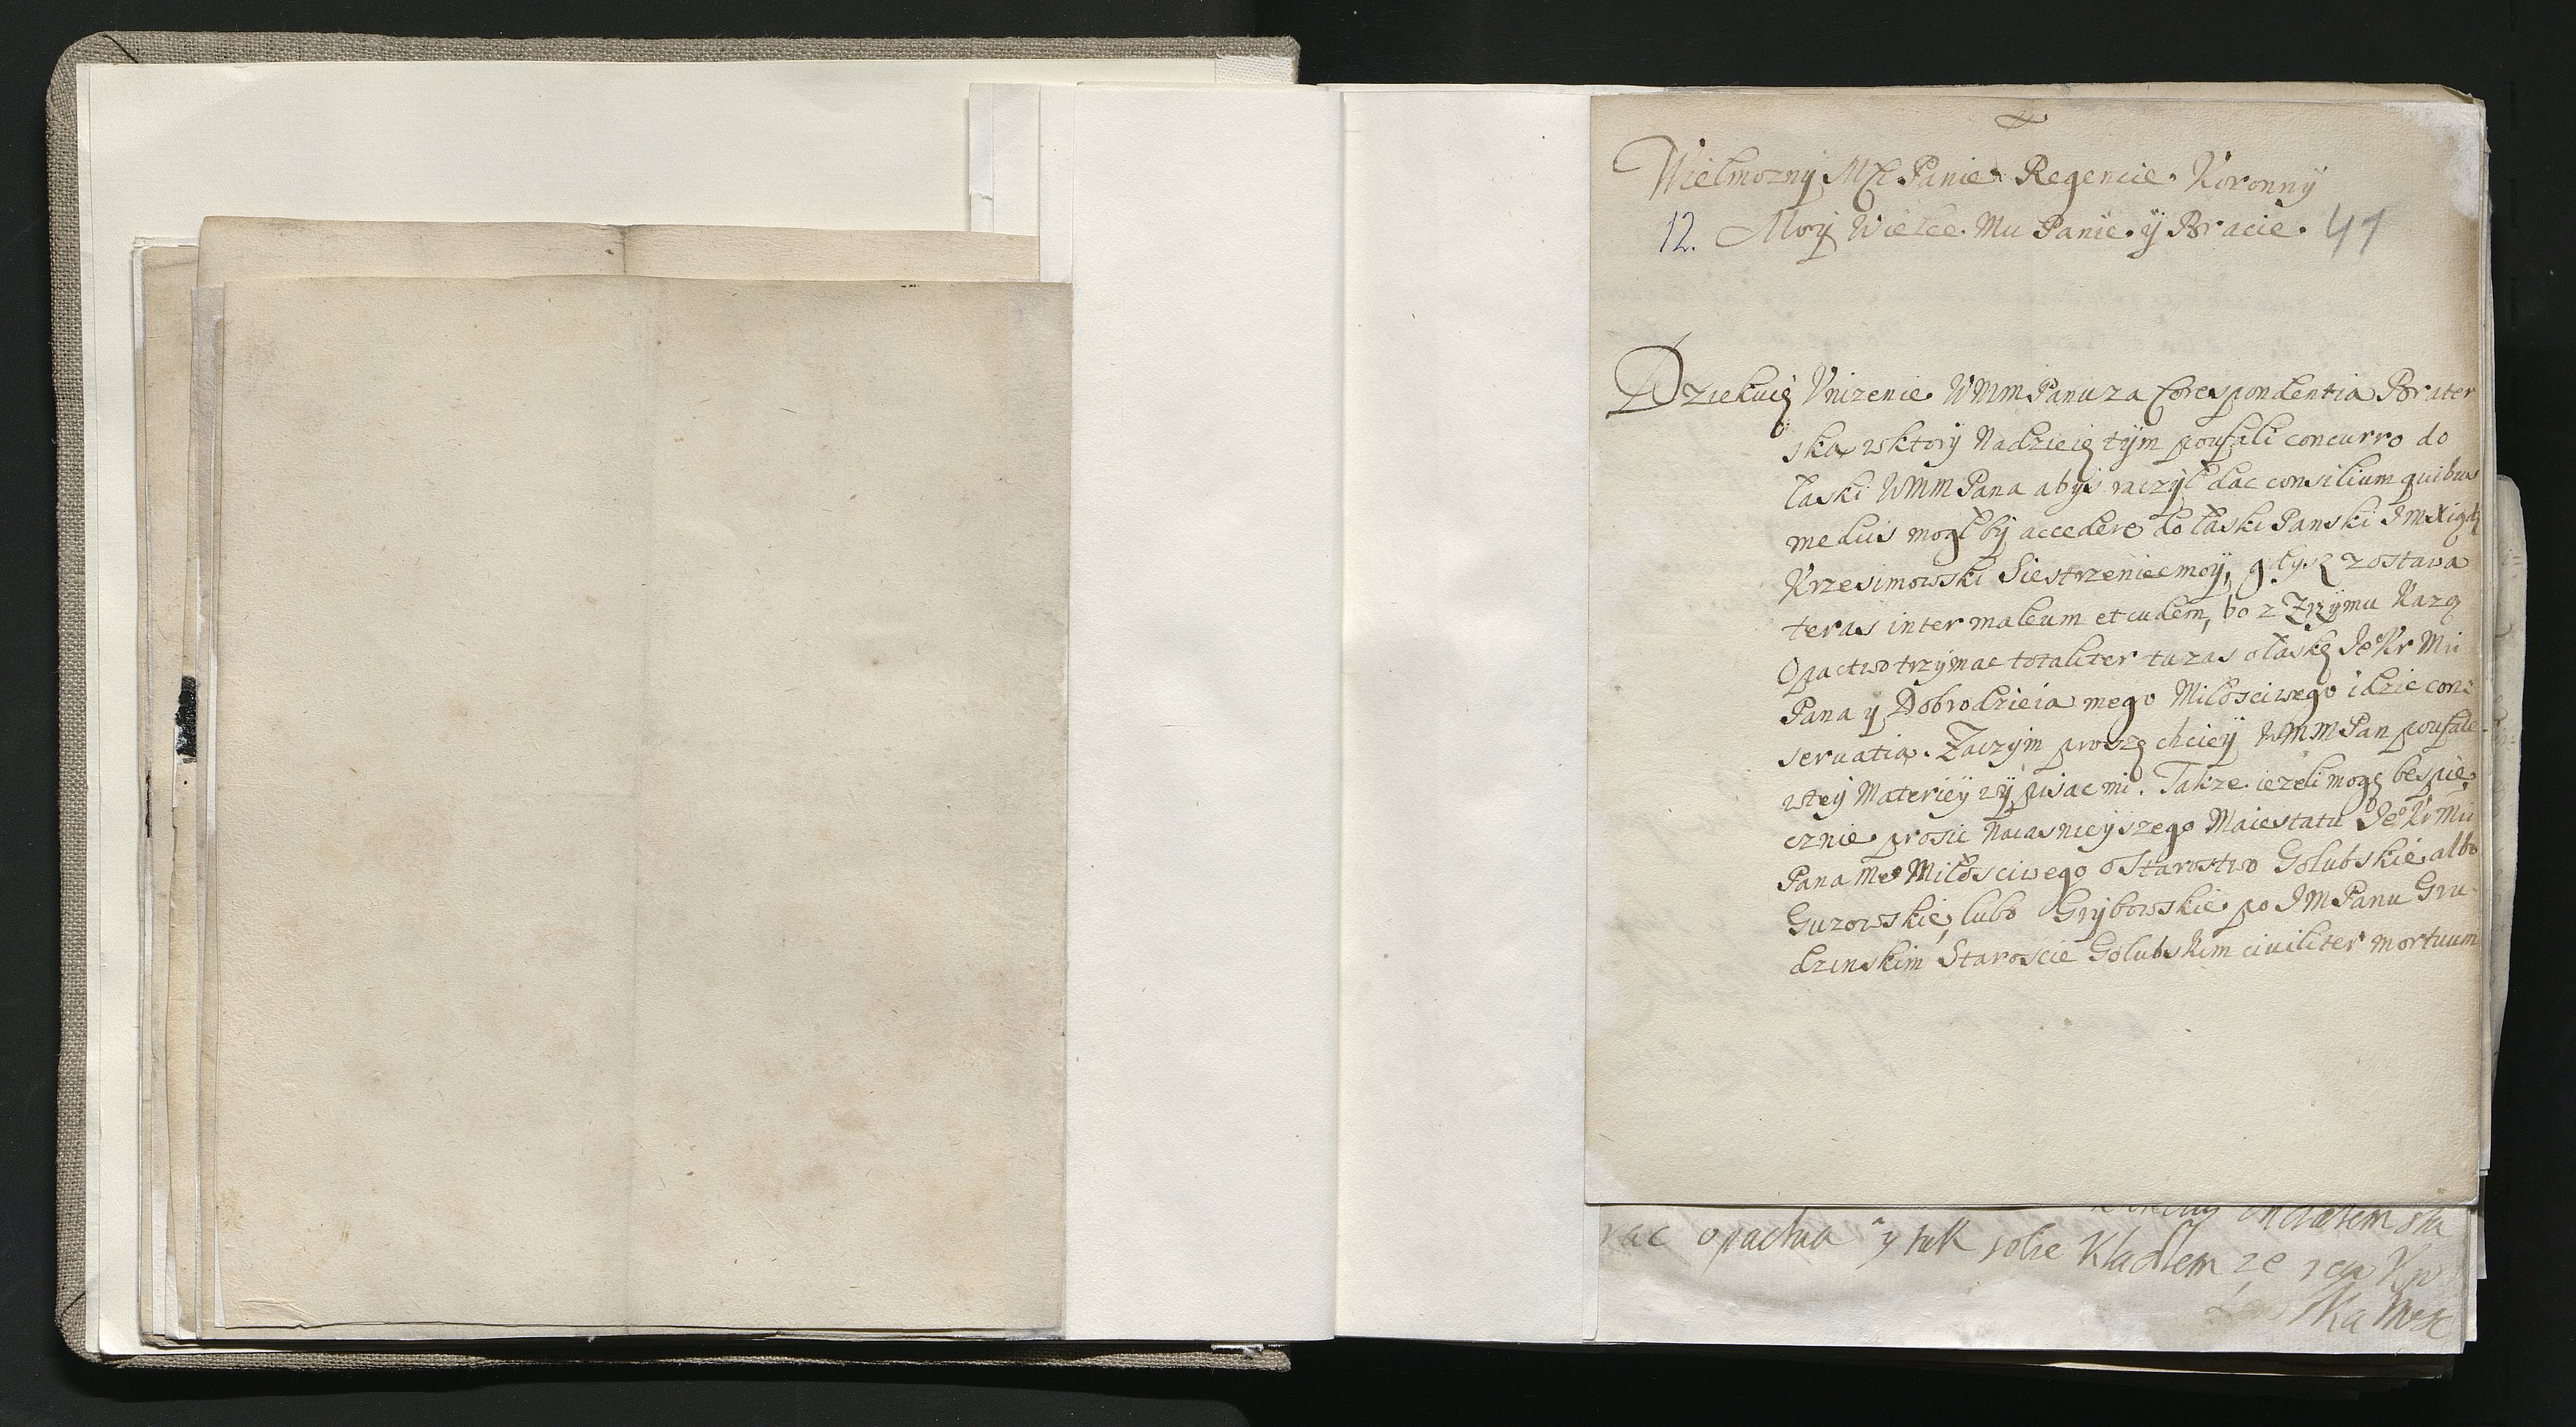 Wielmozny Mċi Panie Regencie Koronny
12. Moy Wielce Mu Panie y Bracie. 41
Dziekuię Vnizenie WMM Panu za Corespondentia Brater
ska, wktory Nadzieię tym poufali concurro do
łaski WMM Pana abys raczył dac consilium quibus
mediis mogł by accedere do łaski Panski JmXiądz
Krzesimowski Siestrzeniec moy, gdysz zostawa
teras inter maleum et cudem, bo z Rzymu Kazą
Opactwo trzymac totaliter tu zas o łaskę Jeo Kr Mci
Pana y Dobrodzieia mego Miłosciwego idzie con=
seruatia. Zaczym proszę chciey WMM Pan poufale
wtey Materiey wypisac mi. Takze iezeli mogę bespie
cznie prosic Naiasnieyszego Maiestatu Jeo Kr Mci
Pana Meo Miłosciwego o Starostwo Golubskie albo
Guzowskie, lubo Grybowskie po JM Panu Gru
dzinskim Staroscie Golubskim ciuiliter mortuum
opactwa y tak sobie Kladłem ze